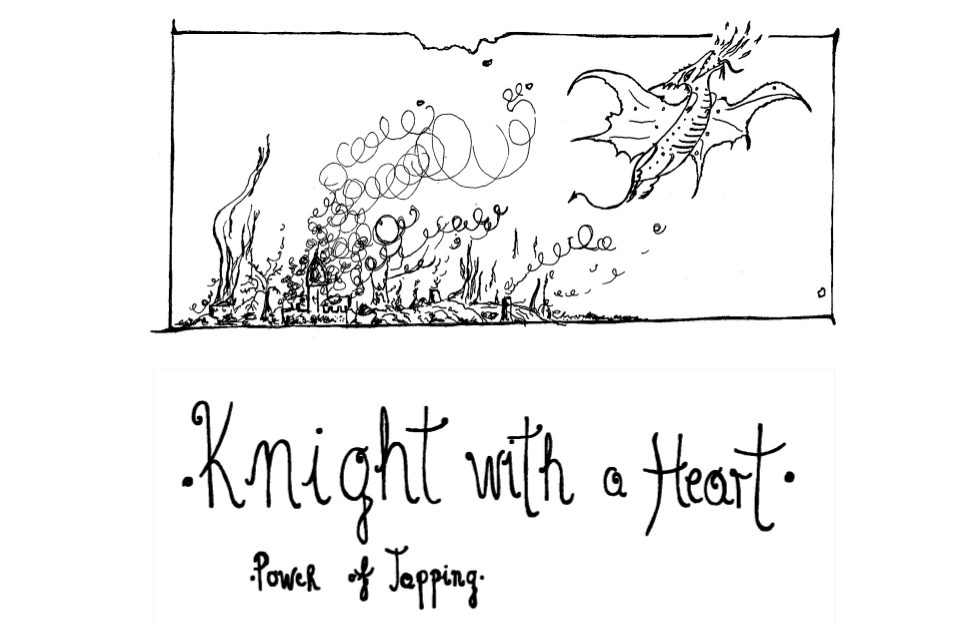 ·Knight with a Heart·
·Power of Tapping·